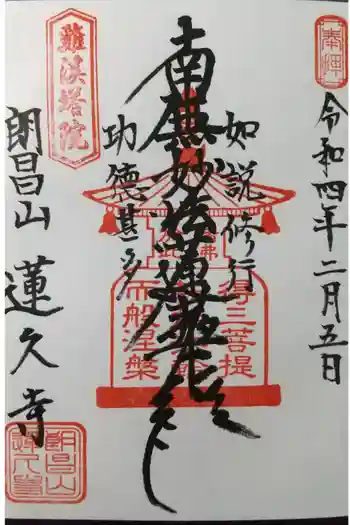 奉拝
令和四年二月五日
如説修行
南無妙法蓮華経
功徳甚多
得三菩提
而般涅槃
朗昌山 蓮久寺
朗昌山